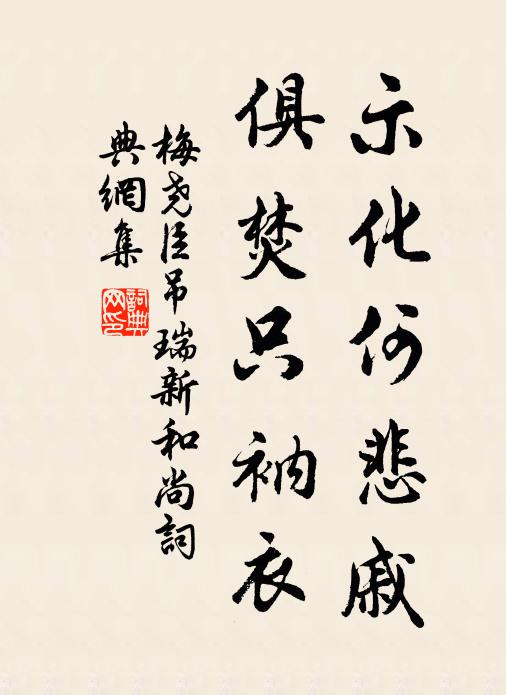 示化何悲戚
俱焚只衲衣
梅尧臣吊瑞新和尚詞
典網集
詞典
网印